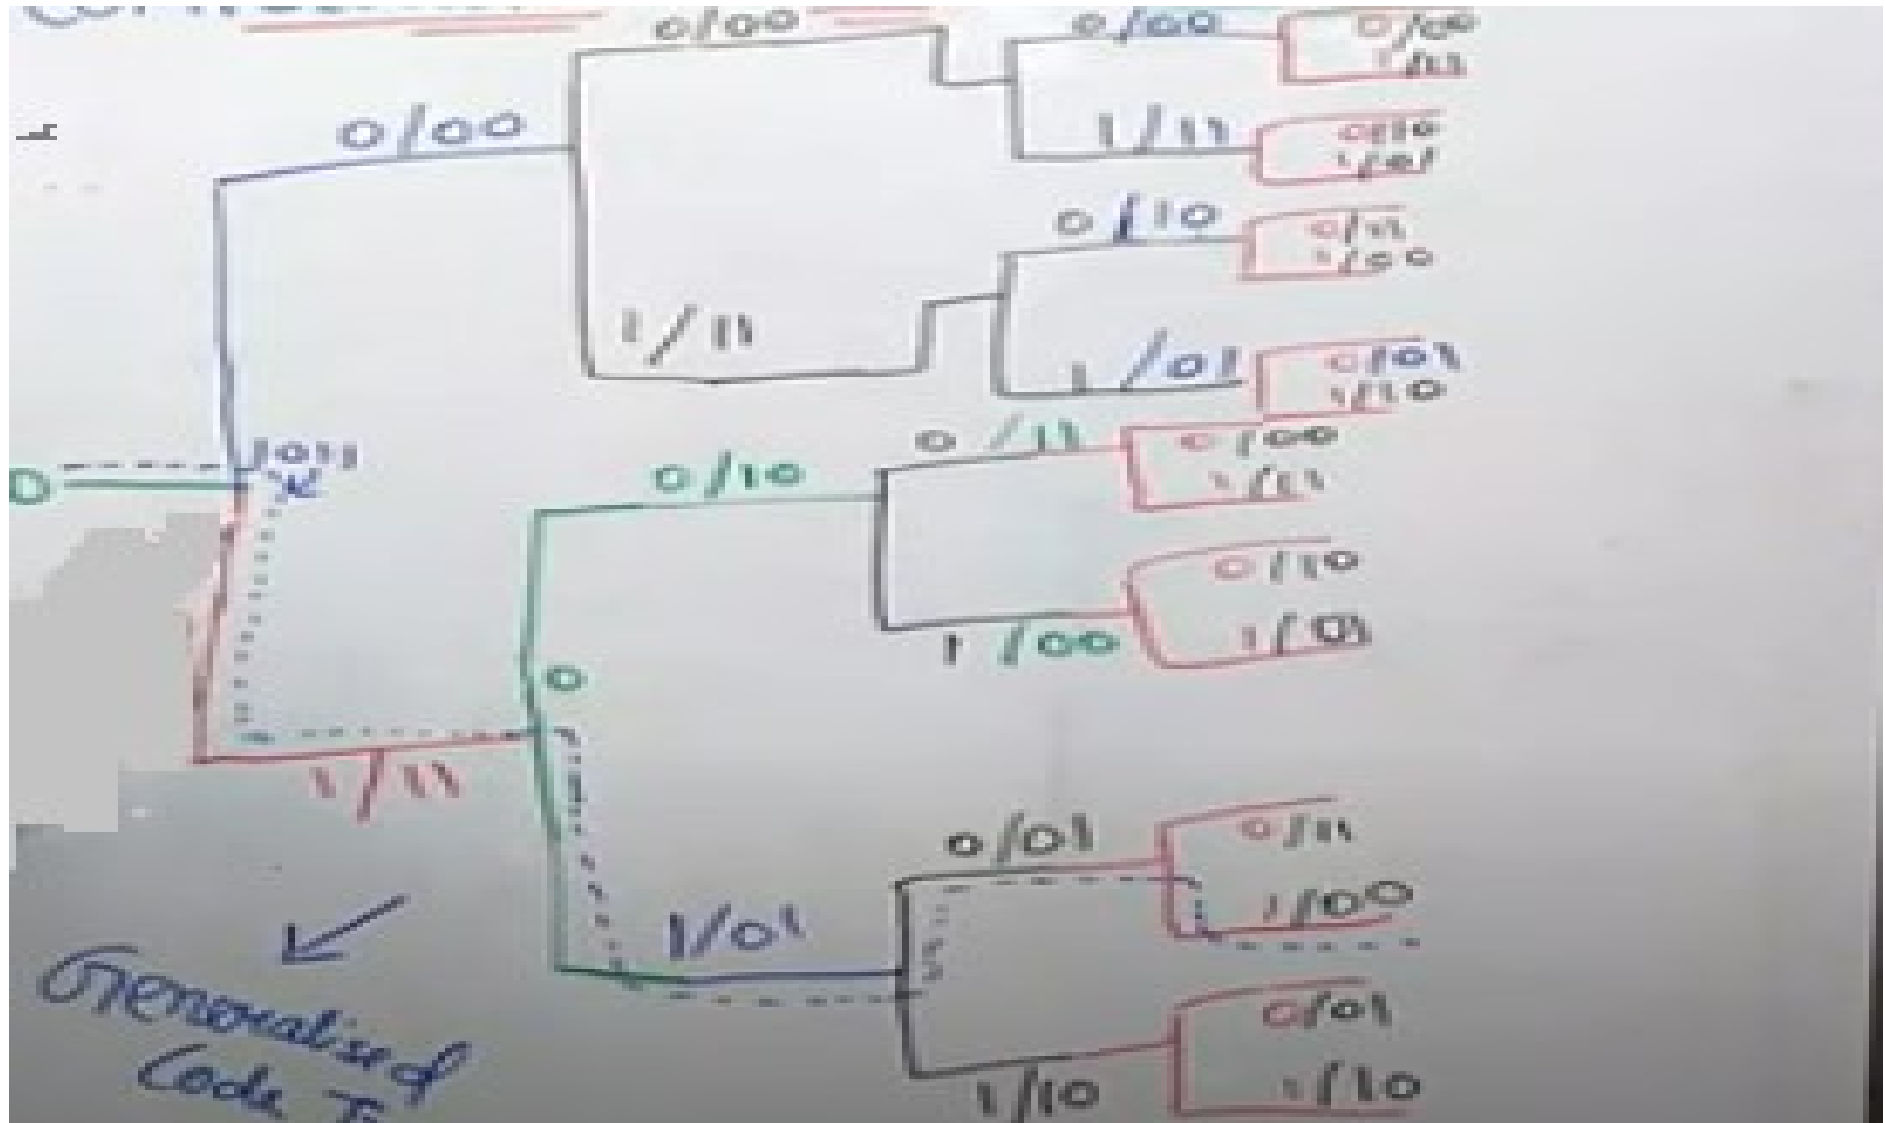 0/00
0/00
0/00
1/11
0/00
1/11
0/10
1/01
1/11
0/10
0/11
1/00
1/01
0/01
1/10
1011
0/10
0/11
0/00
1/11
1/00
0/10
0
1/11
1/01
0/01
0/11
1/00
1/10
0/01
1/10
Generalised
Code